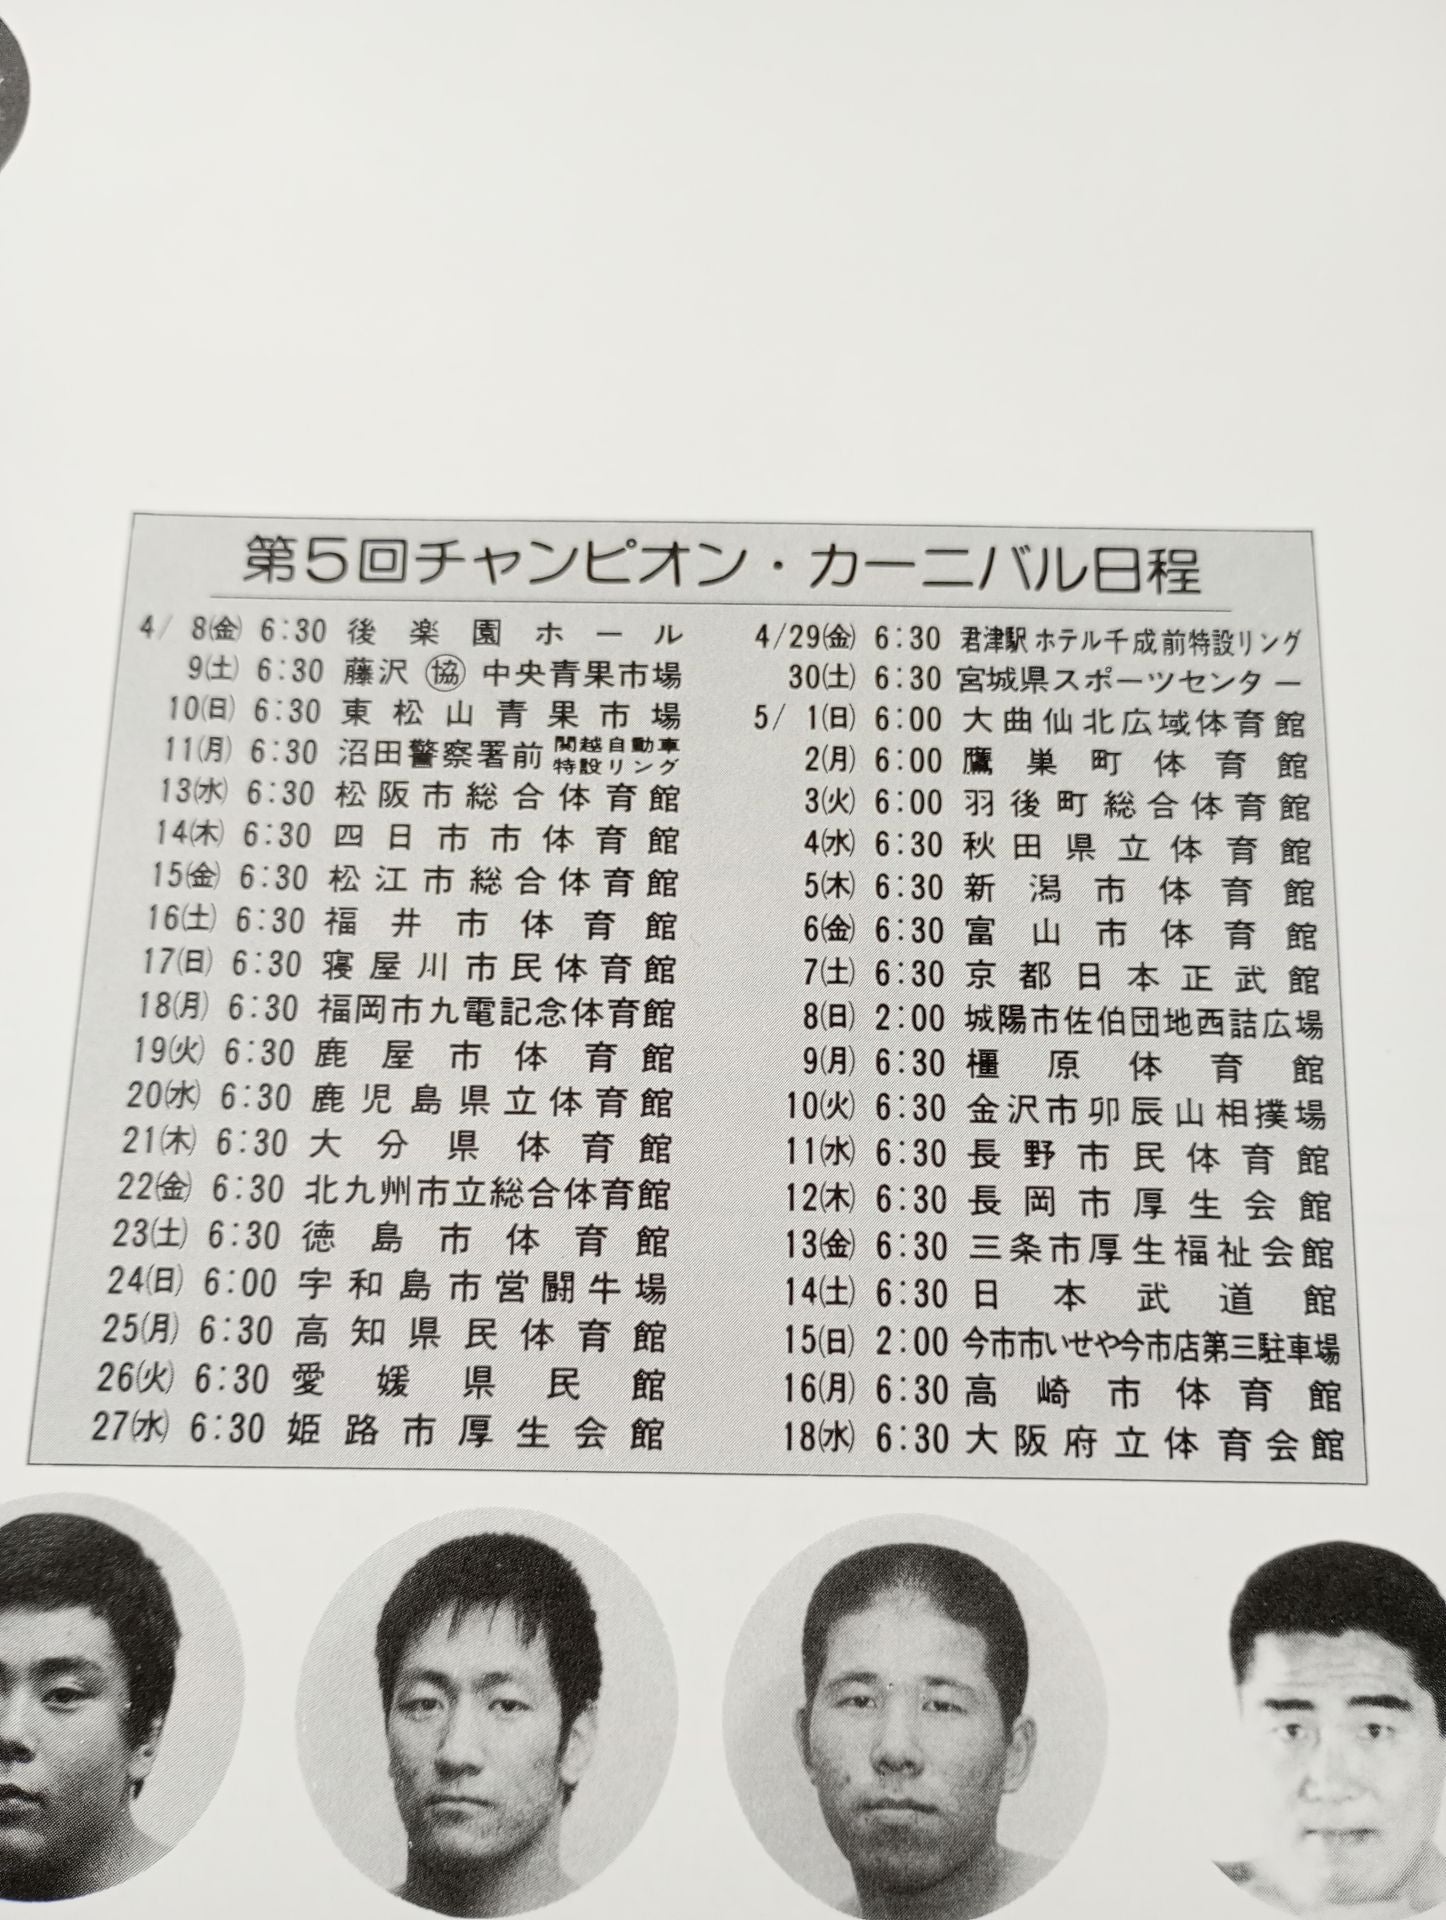 第5回チャンピオン・カーニバル日程
4/ 8(金) 6:30 後楽園ホール
9(土) 6:30 藤沢㊿協 中央青果市場
10(日) 6:30 東松山青果市場
11(月) 6:30 沼田警察署前 関越自動車特設リング
13(水) 6:30 松阪市総合体育館
14(木) 6:30 四日市市体育館
15(金) 6:30 松江市総合体育館
16(土) 6:30 福井市体育館
17(日) 6:30 寝屋川市民体育館
18(月) 6:30 福岡市九電記念体育館
19(火) 6:30 鹿屋市体育館
20(水) 6:30 鹿児島県立体育館
21(木) 6:30 大分県体育館
22(金) 6:30 北九州市立総合体育館
23(土) 6:30 徳島市体育館
24(日) 6:00 宇和島市営闘牛場
25(月) 6:30 高知県民体育館
26(火) 6:30 愛媛県民館
27(水) 6:30 姫路市厚生会館
4/29(金) 6:30 君津駅ホテル千成前特設リング
30(土) 6:30 宮城県スポーツセンター
5/ 1(日) 6:00 大曲仙北広域体育館
2(月) 6:00 鷹巣町体育館
3(火) 6:00 羽後町総合体育館
4(水) 6:30 秋田県立体育館
5(木) 6:30 新潟市体育館
6(金) 6:30 富山市体育館
7(土) 6:30 京都日本正武館
8(日) 2:00 城陽市佐伯団地西詰広場
9(月) 6:30 橿原体育館
10(火) 6:30 金沢市卯辰山相撲場
11(水) 6:30 長野市民体育館
12(木) 6:30 長岡市厚生会館
13(金) 6:30 三条市厚生福祉会館
14(土) 6:30 日本武道館
15(日) 2:00 今市市いせや今市店第三駐車場
16(月) 6:30 高崎市体育館
18(水) 6:30 大阪府立体育会館